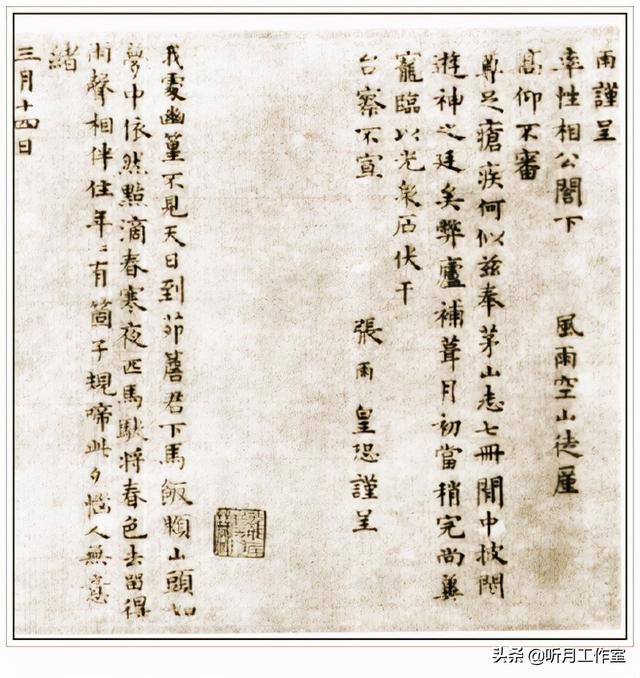 雨謹呈
率性相公閤下 風雨空山徒廑
高仰不審
尊足瘡疾何似茲奉茅山志七冊閒中披閱
遊神之廷矣弊廬補葺月初當稍完尚冀
寵臨以光泉石伏干
台察不宣 張雨皇恐謹呈
我處幽篁不見天日到茆簷君下馬飯顆山頭如
夢中依然點滴春寒夜匹馬馱將春色去留得
雨聲相伴住年〻有箇子規啼此夕惱人無意
緒
三月十四日
头条 @听月工作室